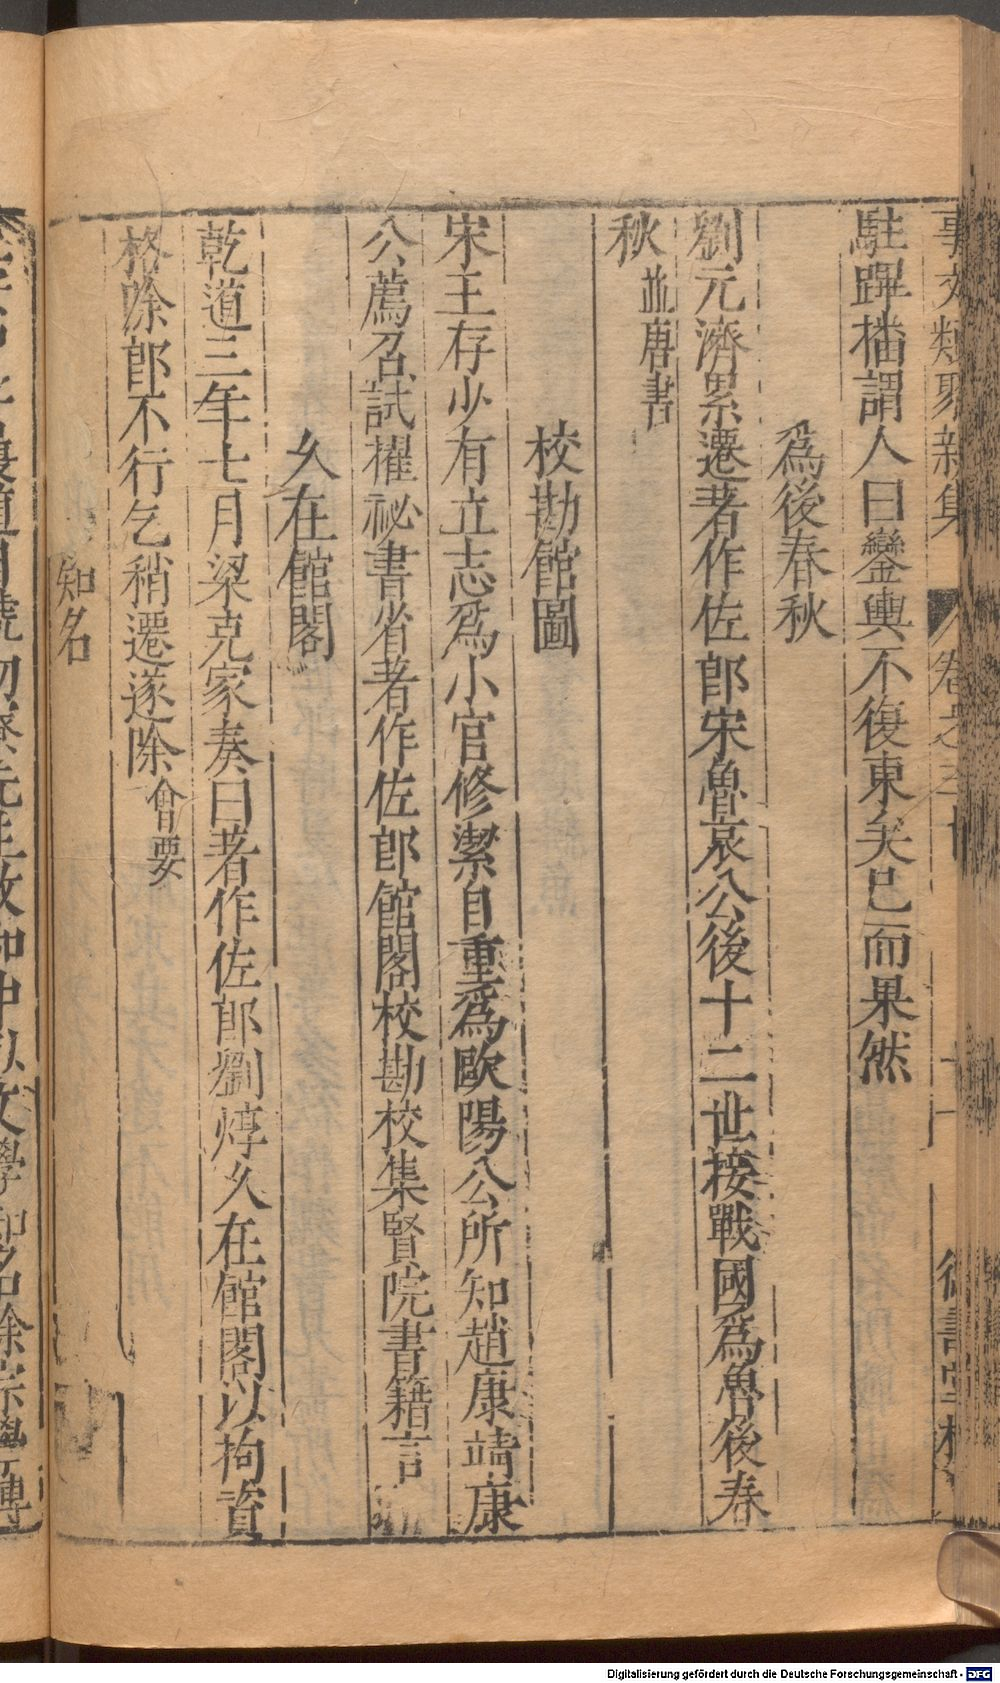 事文類聚新集 卷之三十
駐蹕播謂人曰鑾輿不復東矣已而果然
為後春秋
劉元濟累遷著作佐郎宋魯哀公後十二世接戰國為魯後春
秋並唐書
校勘館圖
宋王存少有立志為小官修潔自重為歐陽公所知趙康靖康
公薦召試擢祕書省著作佐郎館閣校勘校集賢院書籍言
久在館閣
乾道三年七月梁克家奏曰著作佐郎劉焞久在館閣以拘資
格除郎不行乞稍遷遂除會要
知名
Digitalisierung gefördert durch die Deutsche Forschungsgemeinschaft - DFG